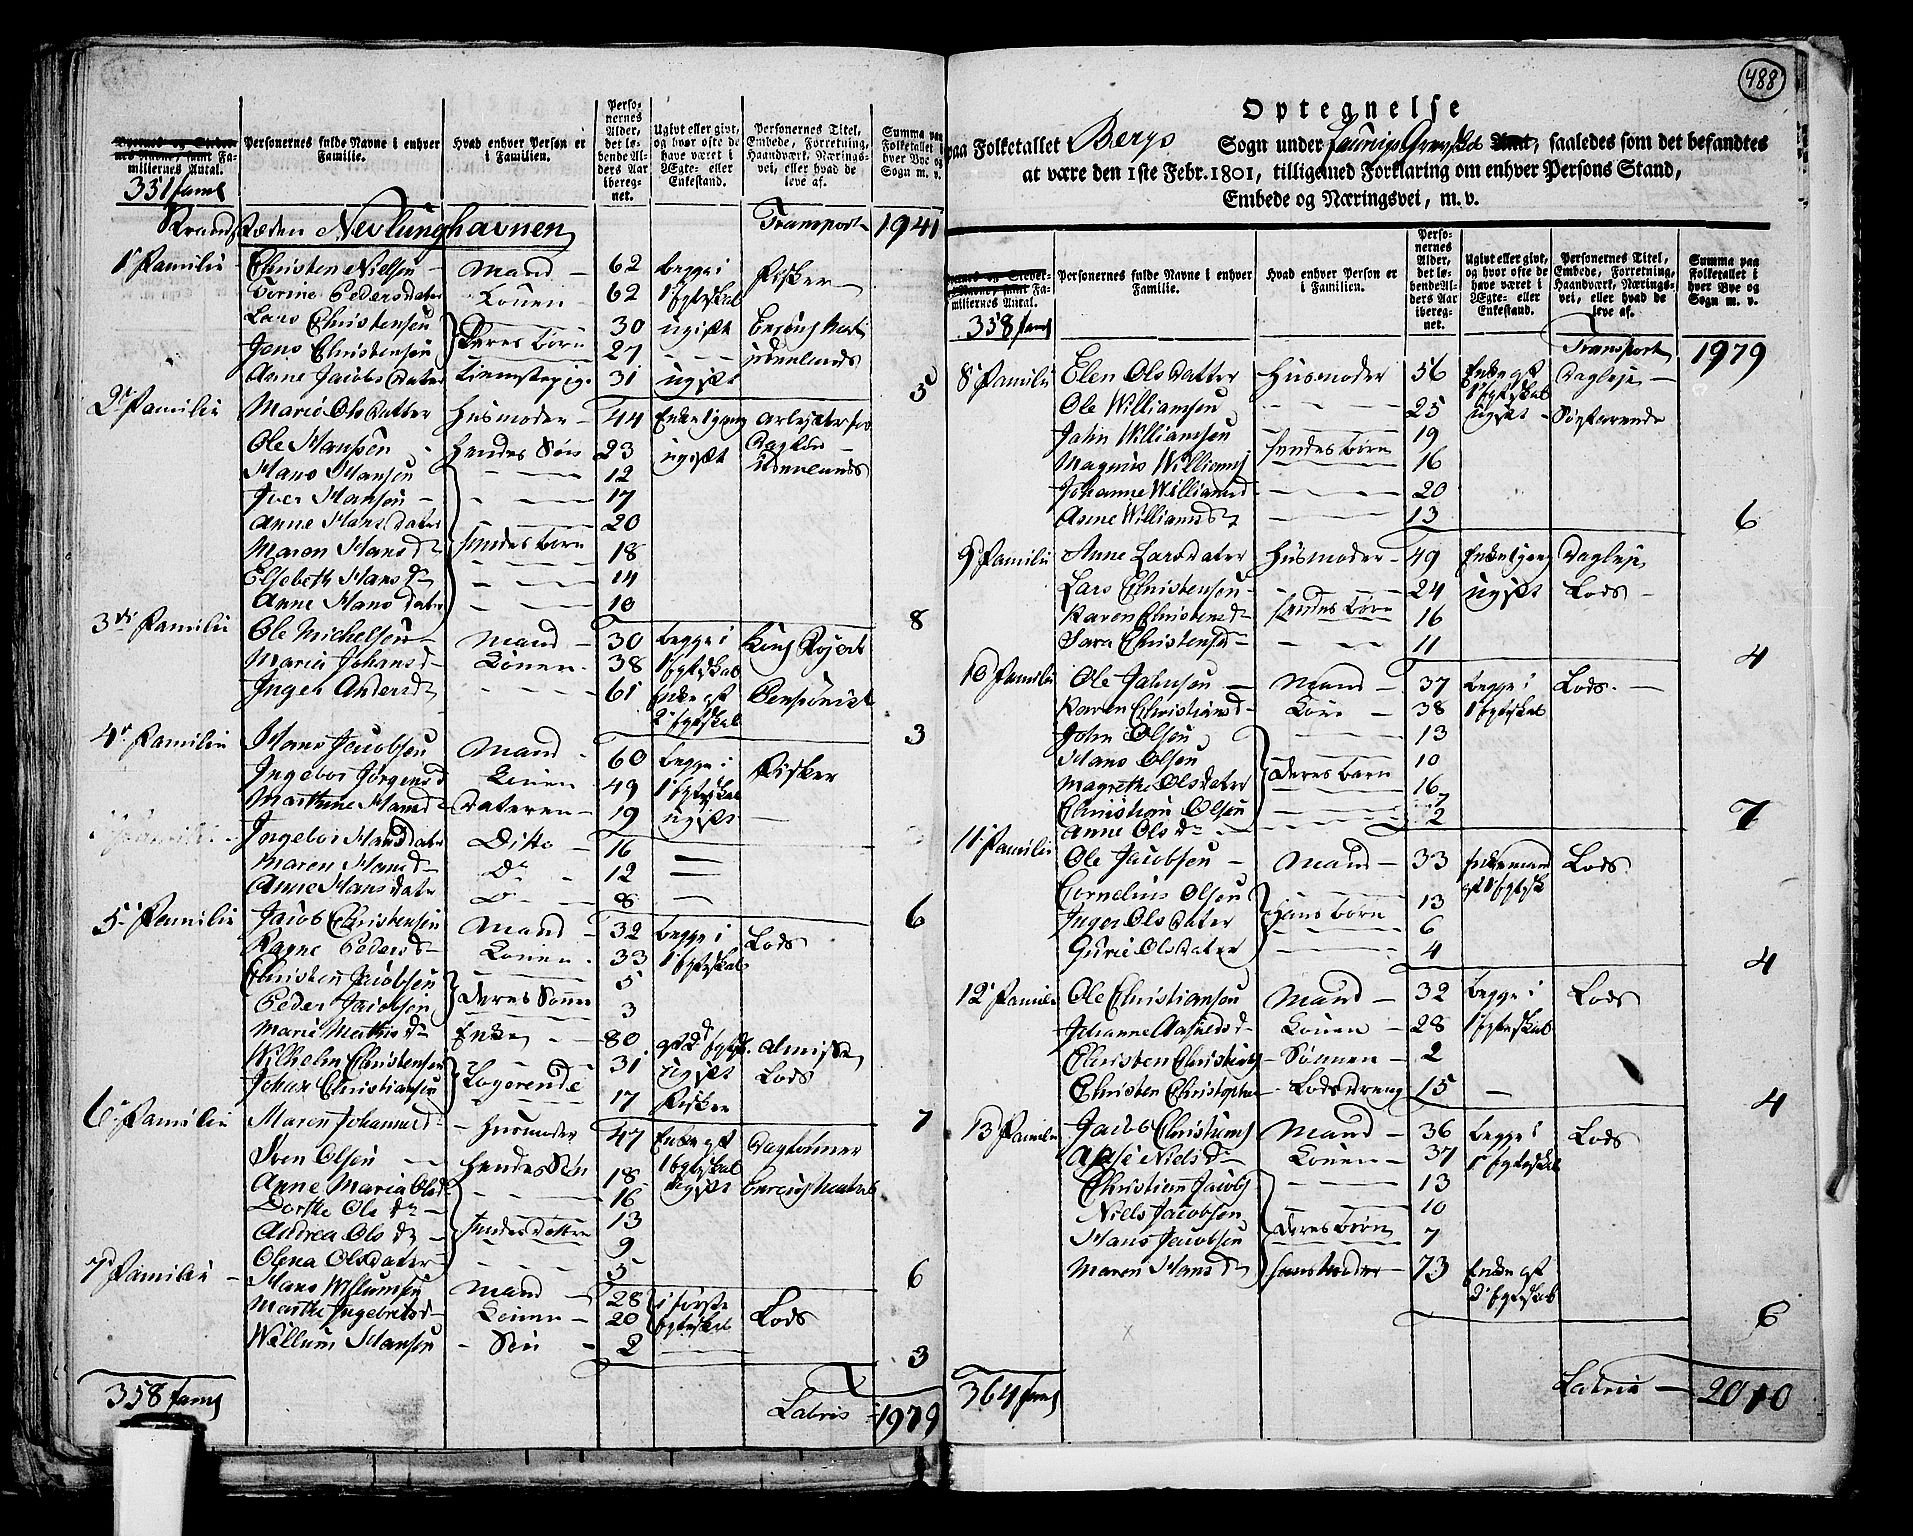 488
Optegnelse
paa Folketallet Bergs Sogn under Laurvigs Grevskab Amt, saaledes som det befandtes
at være den 1ste Febr. 1801, tilligemed Forklaring om enhver Persons Stand,
Embede og Næringsvei, m. v.
Byernes og Stedernes Navne, samt Familiernes Antal.
Personernes fulde Navne i enhver Familie.
Hvad enhver Person er i Familien.
Personernes Alder, det løbende Alders Aar iberegnet.
Ugivt eller givt, og hvor ofte de have været i Ægte- eller Enkestand.
Personernes Titel, Embede, Forretning, Haandværk, Næringsvei, eller hvad de leve af.
Summa paa Folketallet i hver Bye og Sogn m. v.
351 faml
Strandstæden Nevlunghavnen Transport 1941
1 Familie Christen Nielsen Mand 62 begge i Fisker
Torine Pedersdater Konen 62 1 Egteskab
Lars Christensen 30 ugift
Jens Christensen Deres børn 27 udenlands
Anne Jacobsdater tienestepige 31 ugift 5
2 Familie Marie Olsdatter Husmoder 44 Enke 1 gang
Ole Hansen Hendes Søn 23 ugift
Hans Hansen 12 udenlands
Iver Hansen 17
Anne Hansdater 20
Maren Hansd hendes born 18
Elsebeth Hansd 14
Anne Hansdater 10 8
3die Familie Ole Michelsen Mand 30 begge i
Marie Johansd Konen 38 1 Egteskab
Inger Andersd 61 Enke eft 2 Egteskab Pensionist 3
4 Familie Hans Jacobsen Mand 60 begge i Fisker
Ingebor Jørgensd Konen 49 1 Egteskab
Marthine Hansd dateren 19 ugift
Ingebor Hansdater Ditto 16
Maren Hansd Do 12
Anne Hansdater Do 8 6
5 Familie Jacob Christensen Mand 32 begge i Lods
Ragne Pedersd Konen 33 1 Egteskab
Christen Jacobsen 5
Peder Jacobsen Deres Sønne 3
Marie Mathisd Enke 80 Almisse
Wilhelm Christensen 31 ugift Lods
Johan Christiansen Logerende 17 Fisker 7
6 Familie Maren Johannesd Husmoder 47 Enke eft Daglønner
Sven Olsen Hendes Søn 18 1 Egteskab ugift
Anne Maria Olsd 16
Dorthe Olsd 13
Andrea Olsd hendes Døttre 9
Olena Olsdater 5 6
7 Familie Hans Willumsen Mand 28 i første Lods
Marthe Ingebretsd Konen 20 Egteskab
Willum Hansen Søn 2 3
358 faml Latris 1979
Byernes og Stedernes Navne, samt Familiernes Antal.
Personernes fulde Navne i enhver Familie.
Hvad enhver Person er i Familien.
Personernes Alder, det løbende Alders Aar iberegnet.
Ugivt eller givt, og hvor ofte de have været i Ægte- eller Enkestand.
Personernes Titel, Embede, Forretning, Haandværk, Næringsvei, eller hvad de leve af.
Summa paa Folketallet i hver Bye og Sogn m. v.
358 faml
Transport 1979
8 Familie Elen Olsdatter Husmoder 56 Enke eft 1 Egteskab Dagleje
Ole Williamsen 25 ugift Søefarende
John Williamsen 19
Magnus Williams hendes børn 16
Johanne Williamsd 20
Anne Williamsd 13 6
9 Familie Anne Larsdater Husmoder 49 Enke 1 gang Dagleje
Lars Christensen 24 ugift Lods
Karen Christensd hendes børn 16
Sara Christensd 11 4
10 Familie Ole Johnsen Mand 37 begge i Lods
Karen Christiansd Kone 38 1 Egteskab
John Olsen 13
Hans Olsen 10
Magrethe Olsdater Deres børn 16
Christian Olsen 7
Anne Olsd 2 7
11 Familie Ole Jacobsen Mand 33 Enkemand Lods
Cornelius Olsen 13 eft 1 Egtesk
Inger Olsdater Hans børn 6
Gurie Olsdater 4 4
12 Familie Ole Christiansen Mand 32 begge i Lods
Johanne Aslaksd Konen 28 1 Egteskab
Christen Christians Sønnen 2
Christen Christopher Lodsdreng 15 4
13 Familie Jacob Christians Mand 36 begge i Lods
Nielsd Konen 37 1 Egteskab
Christian Jacobs 13
Niels Jacobsen 10
Hans Jacobsen Deres børn 7
Maren Hansd hans Moder 73 Enke eft 2 Egteskab 6
364 faml Latris 2010